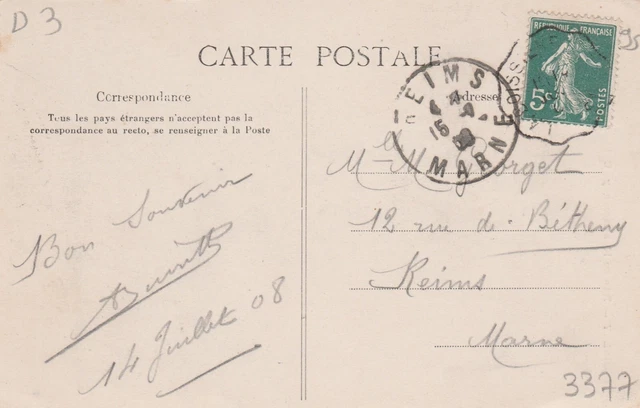 D 3
95
CARTE POSTALE
REPUBLIQUE FRANÇAISE
5c
POSTES
REIMS
15
MARNE
Correspondance
Adresse
Tous les pays étrangers n'acceptent pas la
correspondance au recto, se renseigner à la Poste
Bon Souvenir
14 Juillet 08
Mlle M. Gorget
12 rue de Bétheny
Reims
Marne
3377